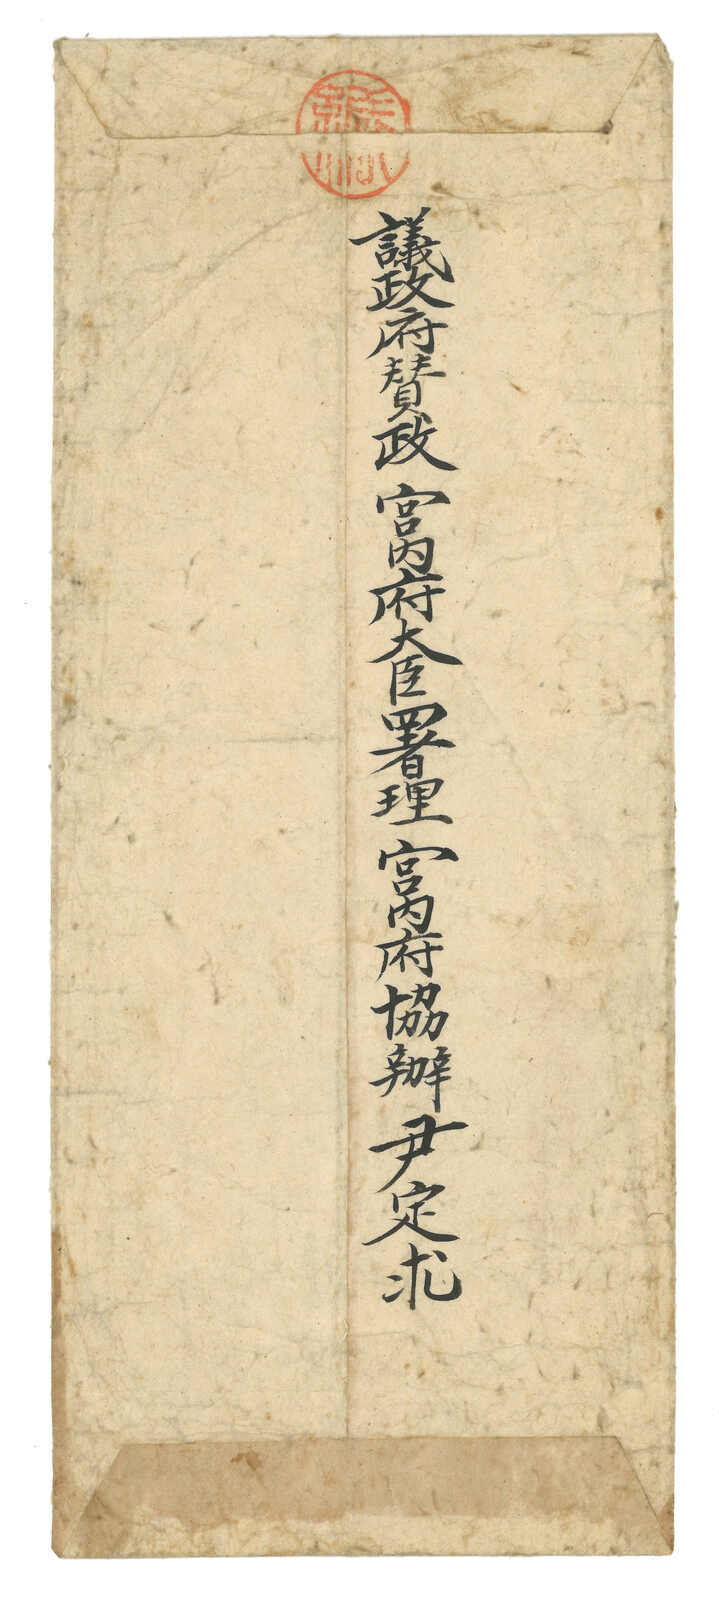 議政府賛政 宮內府大臣署理 宮內府協辦 尹定求